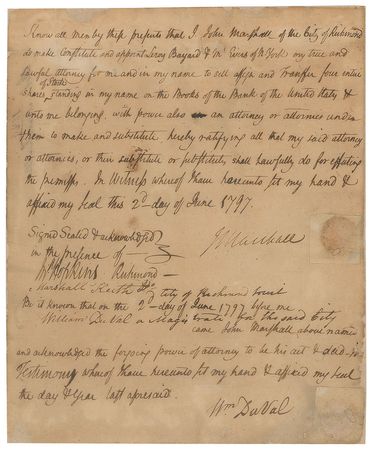 Know all men by these presents that I John Marshall of the City of Richmond
do make Constitute and appoint Leroy Bayard & Mc Evers of N York my true and
lawful attorney for me and in my name to sell assign and transfer four entire
of Stock
shares, standing in my name on the Books of the Bank of the United States &
unto me belonging, with power also an attorney or attornies under
them to make and substitute hereby ratifying all that my said attorney
or attornies, or their substitute or substitutes, shall lawfully do for effecting
the premises. In Witness whereof I have hereunto set my hand &
affixed my seal this 2d day of June 1797.
Signed Sealed & acknowledged
in the presence of
J Marshall
Richmond
Marshall
City of Richmond
Be it known that on the 2d day of June 1797 before me
William DuVal a Magistrate for the said City
came John Marshall above named
and acknowledged the forgoing power of attorney to be his act & deed in
Testimony whereof I have hereunto set my hand & affixed my seal
the day & year last aforesaid.
Wm DuVal